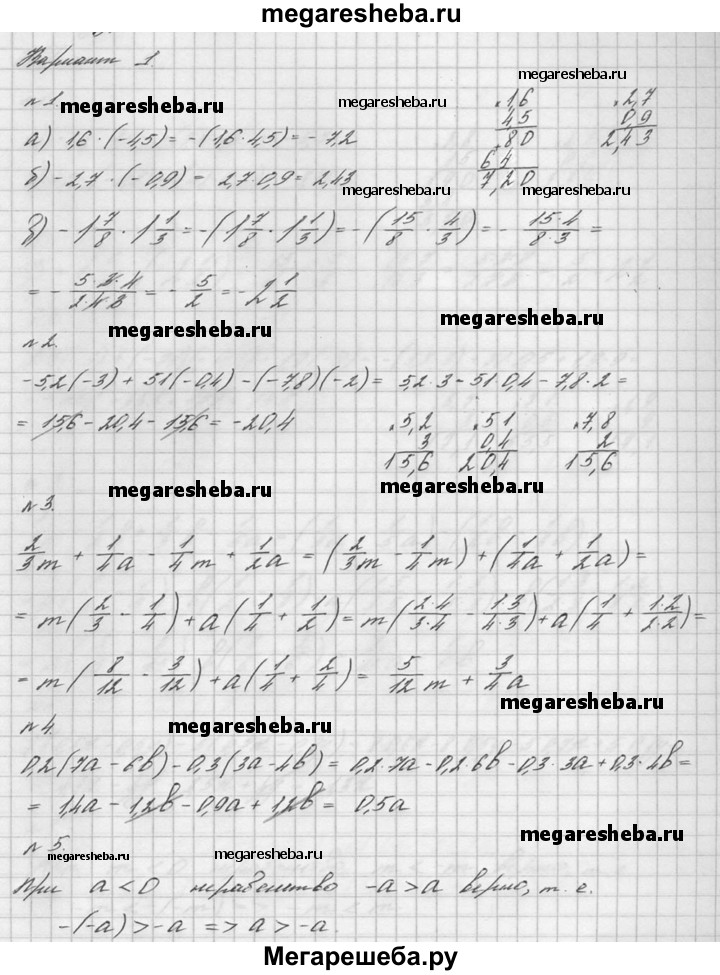 megaresheba.ru
Вариант 1
megaresheba.ru
№1. megaresheba.ru megaresheba.ru
а) 1,6 · (-4,5) = -(1,6 · 4,5) = -7,2
× 1,6
4,5
80
64
7,20
× 2,7
0,9
2,43
б) -2,7 · (-0,9) = 2,7 · 0,9 = 2,43
megaresheba.ru megaresheba.ru
в) -1 7/8 · 1 1/3 = -(1 7/8 · 1 1/3) = -(15/8 · 4/3) = - 15·4/8·3 =
= - 5·3·4/2·4·3 = - 5/2 = -2 1/2
megaresheba.ru megaresheba.ru
№2.
-5,2(-3) + 51(-0,4) - (-7,8)(-2) = 5,2·3 - 51·0,4 - 7,8·2 =
= 15,6 - 20,4 - 15,6 = -20,4
× 5,2
3
15,6
× 51
0,4
20,4
× 7,8
2
15,6
megaresheba.ru megaresheba.ru
№3.
2/3m + 1/4a - 1/4m + 1/2a = (2/3m - 1/4m) + (1/4a + 1/2a) =
= m(2/3 - 1/4) + a(1/4 + 1/2) = m(2·4/3·4 - 1·3/4·3) + a(1/4 + 1·2/2·2) =
= m(8/12 - 3/12) + a(1/4 + 2/4) = 5/12m + 3/4a
megaresheba.ru
№4. megaresheba.ru
0,2(7a - 6b) - 0,3(3a - 4b) = 0,2·7a - 0,2·6b - 0,3·3a + 0,3·4b =
= 1,4a - 1,2b - 0,9a + 1,2b = 0,5a
№5. megaresheba.ru
megaresheba.ru megaresheba.ru megaresheba.ru
При a < 0 неравенство -a > a верно, т. е.
-(-a) > -a => a > -a.
Мегарешеба.ру